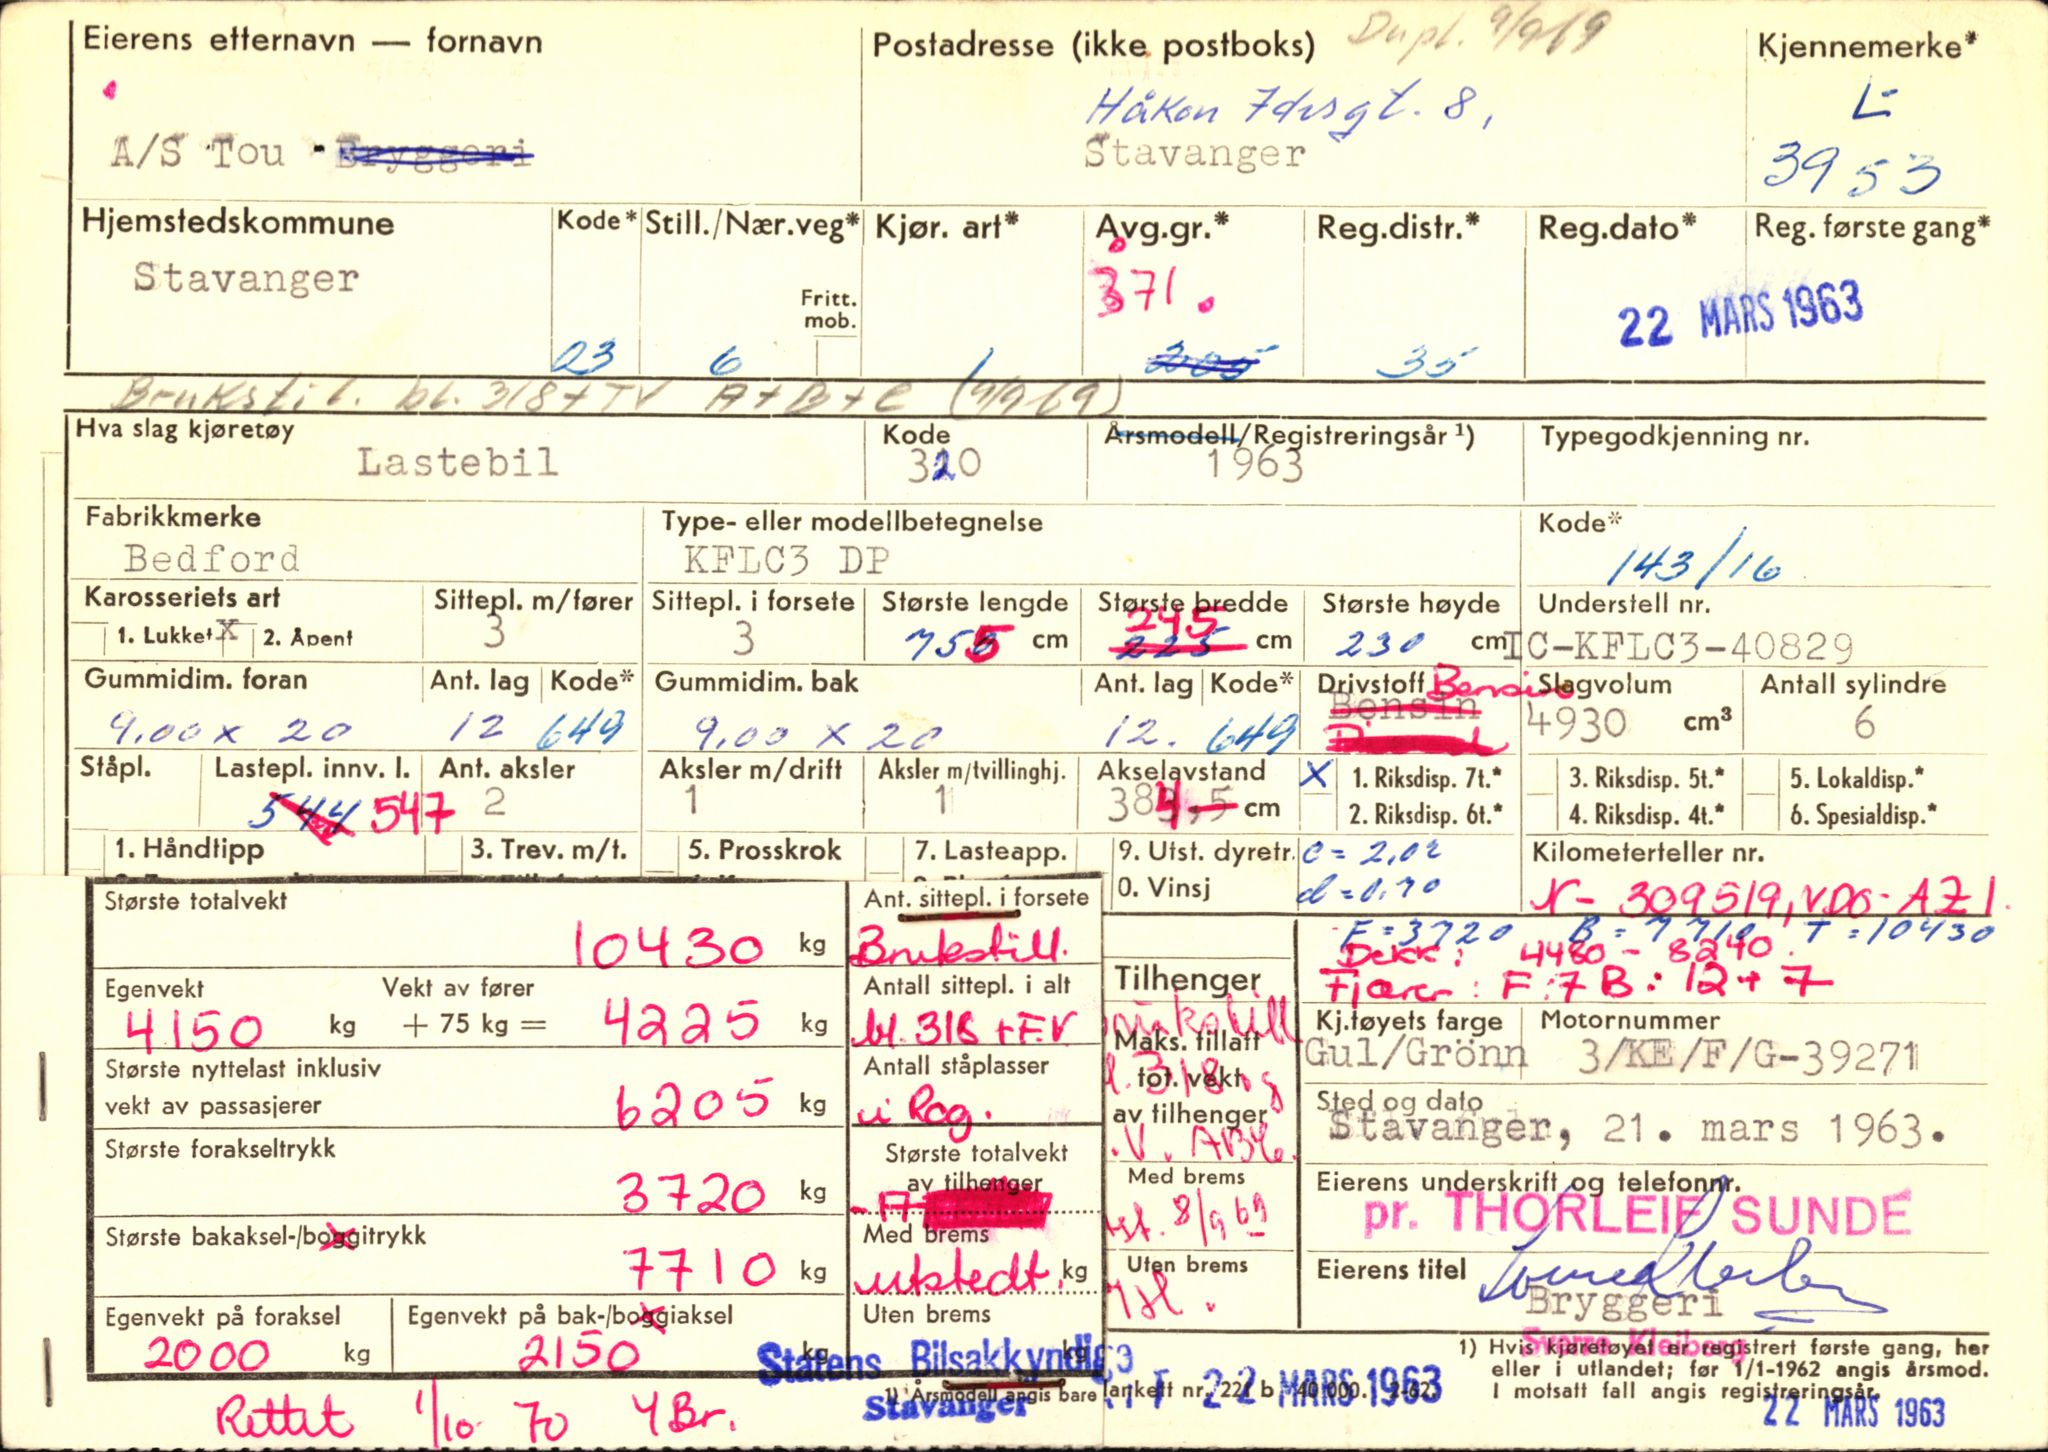 Eierens etternavn — fornavn
Postadresse (ikke postboks) Dupl. 9/9 69
Kjennemerke*
Håkon 7dvsgt. 8,
L-
A/S Tou - Bryggeri
Stavanger
3953
Hjemstedskommune
Kode* Still./Nær.veg* Kjør. art* Avg.gr.* Reg.distr.* Reg.dato* Reg. første gang*
Stavanger
371.
Fritt.
mob.
22 MARS 1963
03 6 1 205 35
Brukstil. bl. 318 + TV A+B+C (9/9 69)
Hva slag kjøretøy
Kode
Årsmodell/Registreringsår 1)
Typegodkjenning nr.
Lastebil
320
1963
Fabrikkmerke
Type- eller modellbetegnelse
Kode*
Bedford
KFLC3 DP
143/16
Karosseriets art
Sittepl. m/fører Sittepl. i forsete Største lengde Største bredde Største høyde Understell nr.
1. Lukket X 2. Åpent
3 3 755 cm 245 225 cm 230 cm IC-KFLC3-40829
Gummidim. foran Ant. lag Kode* Gummidim. bak Ant. lag Kode* Drivstoff Bensin Slagvolum Antall sylindre
9.00 x 20 12 649 9.00 x 20 12. 649 Bensin 4930 cm³ 6
Ståpl. Lastepl. innv. l. Ant. aksler Aksler m/drift Aksler m/tvillinghj. Akselavstand X 1. Riksdisp. 7t.* 3. Riksdisp. 5t.* 5. Lokaldisp.*
544 547 2 1 1 384,5 cm 2. Riksdisp. 6t.* 4. Riksdisp. 4t.* 6. Spesialdisp.*
1. Håndtipp 3. Trev. m/t. 5. Prosskrok 7. Lasteapp. 9. Utst. dyretr. c = 2,02 Kilometerteller nr.
0. Vinsj d = 0,70 N - 309519, VDO - AZ 1.
F = 3720 B = 7710 T = 10430
Dekk: 4480 - 8240.
Fjærer: F:7 B: 12+7
Største totalvekt
10430 kg
Ant. sittepl. i forsete
Brukstill.
Egenvekt Vekt av fører
4150 kg + 75 kg = 4225 kg
Antall sittepl. i alt
bl. 318 + F.V
Største nyttelast inklusiv
vekt av passasjerer 6205 kg
Antall ståplasser
i Rog.
Største forakseltrykk
3720 kg
Største totalvekt
av tilhenger
Største bakaksel-/boggitrykk
7710 kg
Med brems
utstedt. kg
Egenvekt på foraksel Egenvekt på bak-/boggiaksel
2000 kg 2150 kg
Uten brems
kg
Rettet 1/10 70 YBr.
Tilhenger
Maks. tillatt
tot. vekt
av tilhenger
318 og
.V. ABC.
Med brems
st. 8/9 69
Uten brems
Kj.tøyets farge Motornummer
Gul/Grönn 3/KE/F/G-39271
Sted og dato
Stavanger, 21. mars 1963.
Eierens underskrift og telefonnr.
pr. THORLEIF SUNDE
Eierens titel
Bryggeri
Sverre Kleiberg
1) Hvis kjøretøyet er registrert første gang, her
eller i utlandet; før 1/1-1962 angis årsmod.
I motsatt fall angis registreringsår.
Statens Bilsakkyndige
Stavanger
1) Årsmodell angis bare
lankett nr. 221 b 40.000. 2-62.
22 MARS 1963
22 MARS 1963